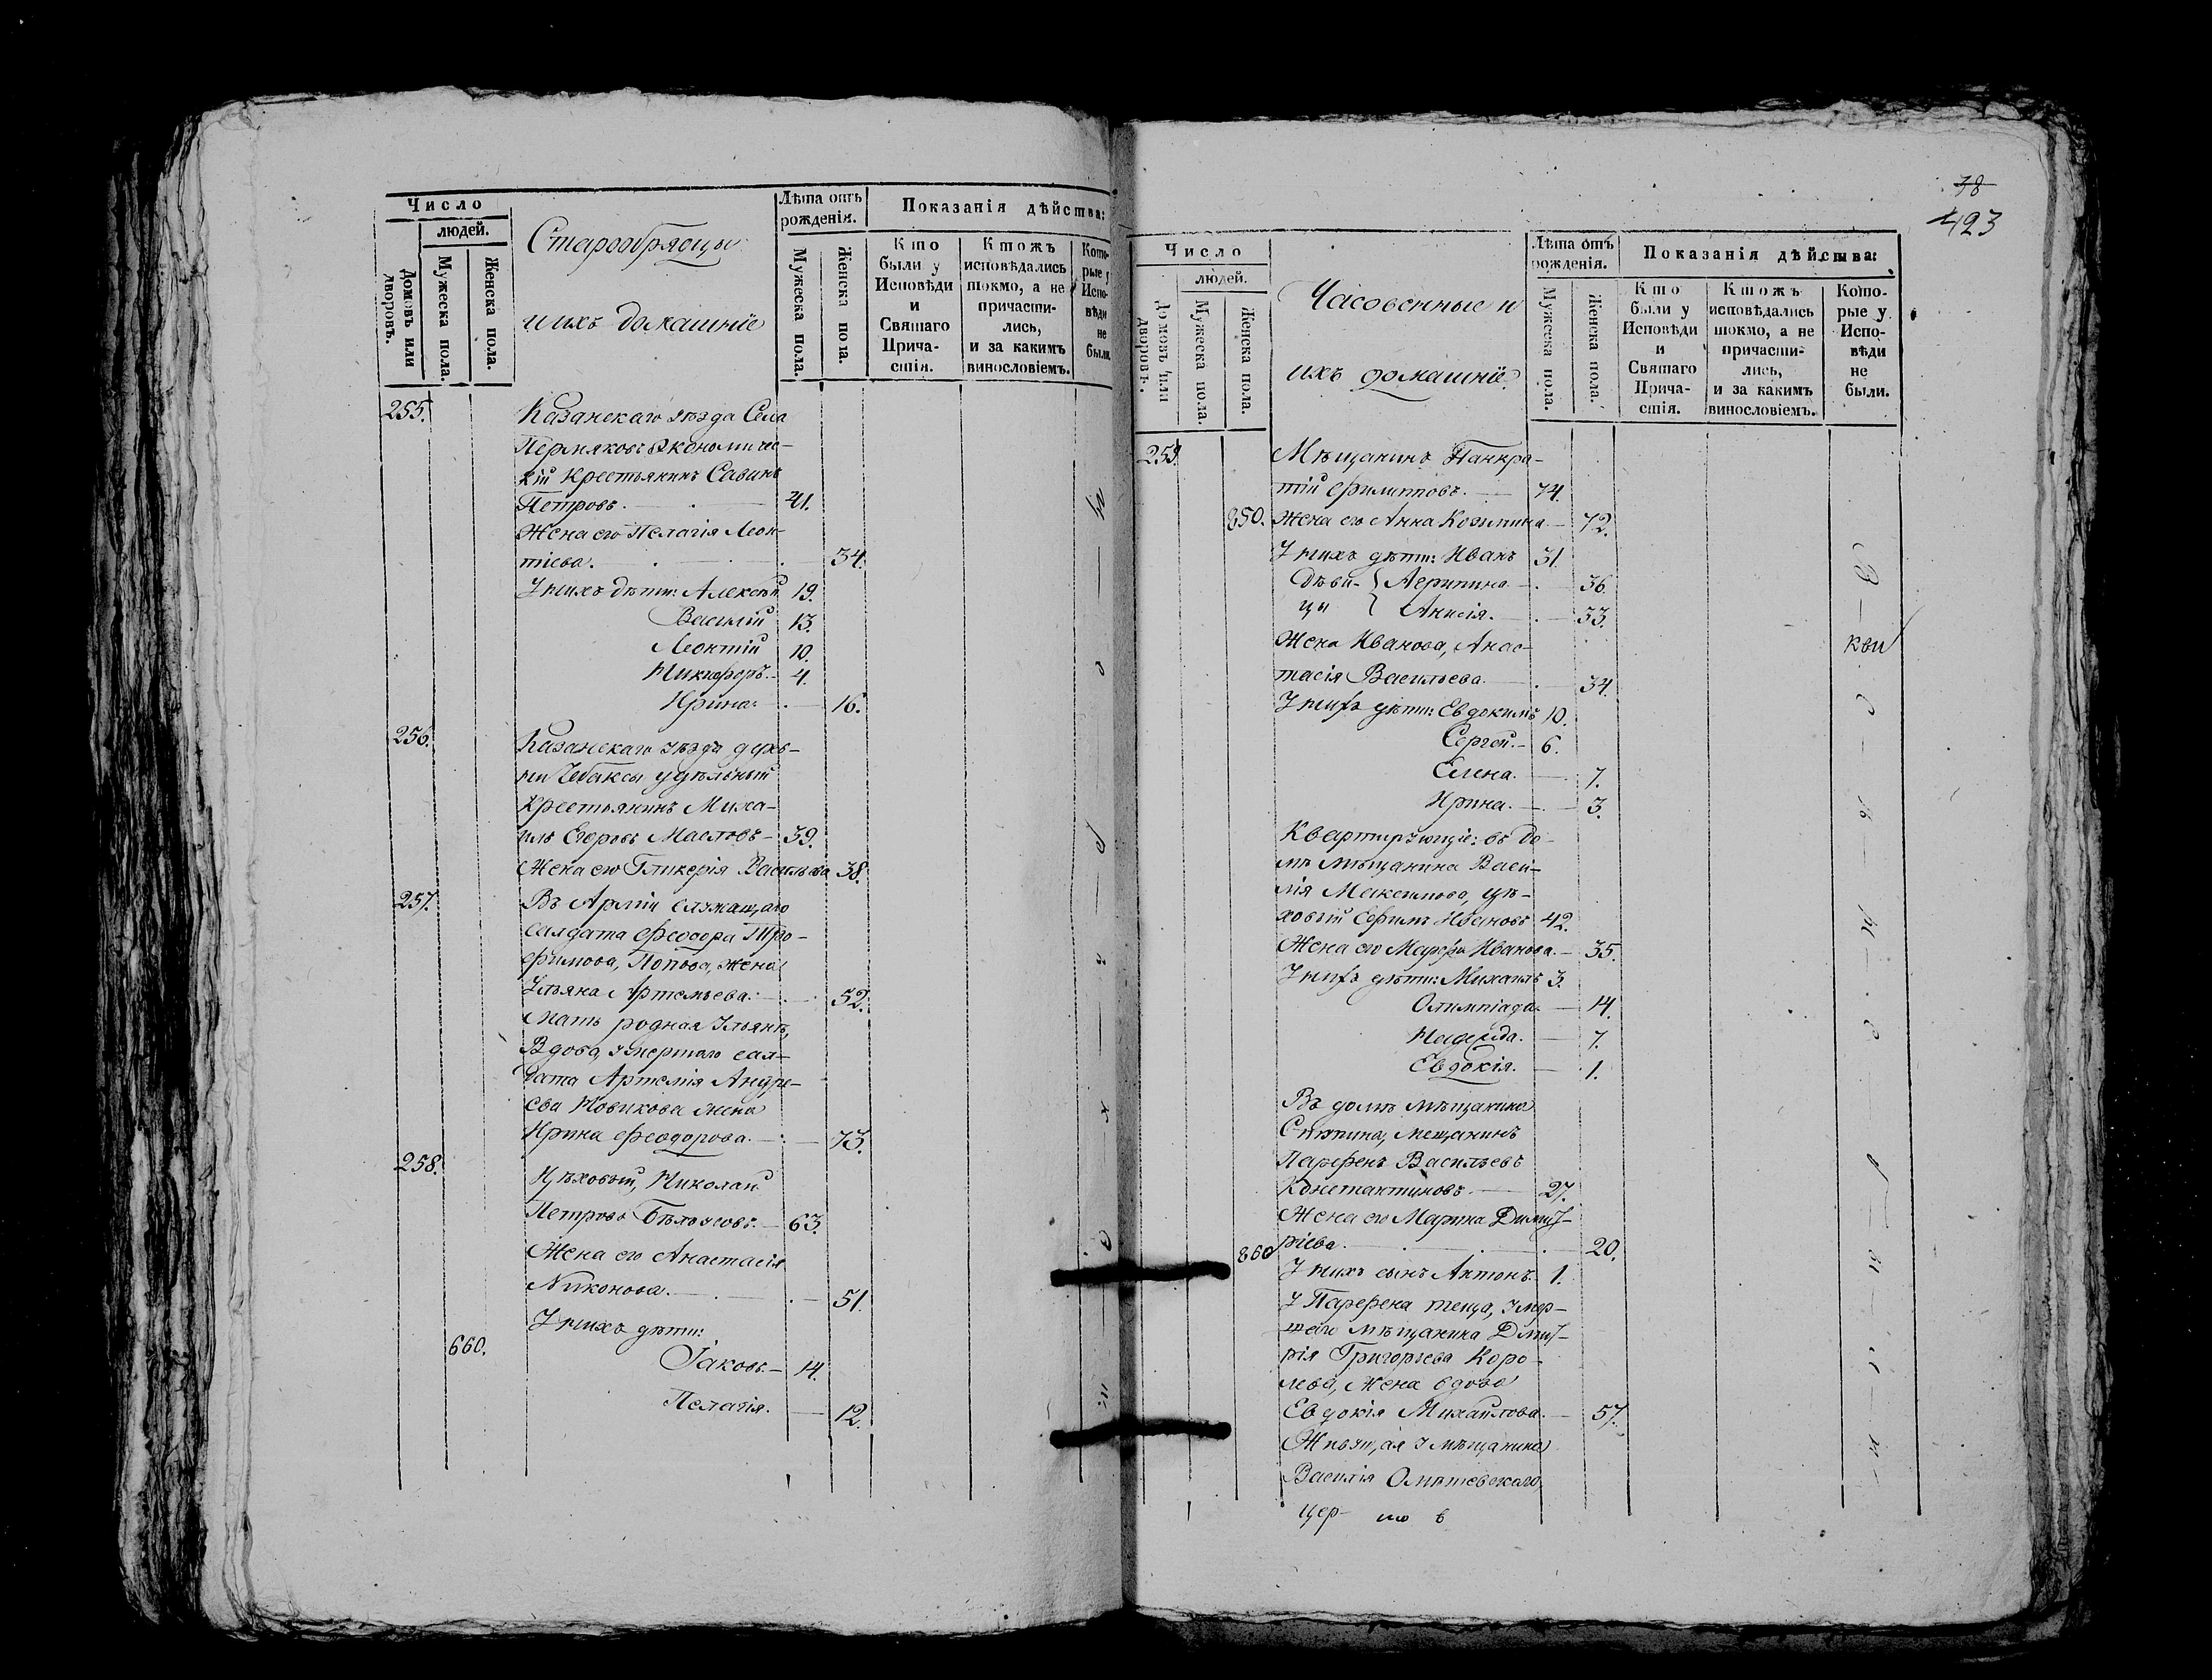 Число
людей.
Домовъ или дворовъ.
Мужеска пола.
Женска пола.
Старообрядцы
и ихъ домашніе
Лѣта отъ рожденія.
Мужеска пола.
Женска пола.
Показанія дѣйства:
Кто были у Исповѣди и Святаго Причастія.
Ктожъ исповѣдались токмо, а не причастились, и за какимъ винословіемъ.
Которые у Исповѣди не были.
255. Казанскаго уѣзда Села
Пермяковъ Экономичес-
кій Крестьянинъ Савинъ
Петровъ. 41.
Жена его Пелагія Леон-
тіева. 34.
У нихъ дѣти: Алексѣй 19.
Василій 13.
Леонтій 10.
Никифоръ. 4.
Ирина. 16.
256. Казанскаго уѣзда дерев-
ни Чебаксы удѣльный
Крестьянинъ Миха-
илъ Егоровъ Масловъ 39.
Жена его Гликерія Васильева 38.
257. Въ Арміи служащаго
салдата Феодора Тро-
фимова, Попова, жена
Ульяна Артемьева. 52.
Мать родная Ульянѣ,
Вдова, умершаго сал-
дата Артемія Андре-
ева Новикова жена
Ирина Феодорова. 73.
258. Цѣховый, Николай
Петровъ Бѣлоусовъ. 63.
Жена его Анастасія
Никонова. 51.
У нихъ дѣти:
660. Іаковъ. 14.
Пелагія. 12.
38
423
Число
людей.
Домовъ или дворовъ.
Мужеска пола.
Женска пола.
Часовенные и
ихъ домашніе
Лѣта отъ рожденія.
Мужеска пола.
Женска пола.
Показанія дѣйства:
Кто были у Исповѣди и Святаго Причастія.
Ктожъ исповѣдались токмо, а не причастились, и за какимъ винословіемъ.
Которые у Исповѣди не были.
259. Мѣщанинъ Панкра-
тій Филиповъ. 74.
850. Жена его Анна Козмина 72.
У нихъ дѣти: Иванъ 31.
Дѣви- Агрипина 36.
цы Анисія. 33.
Жена Иванова, Анас-
тасія Васильева. 34.
У нихъ дѣти: Евдокимъ 10.
Сергей. 6.
Елена. 7.
Ирина. 3.
Квартирующіе: въ до-
мѣ мѣщанина Васи-
лія Максимова, цѣ-
ховый Ефимъ Ивановъ 42.
Жена его Марфа Иванова. 35.
У нихъ дѣти: Михаилъ 3.
Олимпіада. 14.
Надежда. 7.
Евдокія. 1.
Въ домѣ мѣщанина
Стюпина, мещанинъ
Парфенъ Васильевъ
Константиновъ. 27.
Жена его Марина Димит-
ріева. 20.
860 У нихъ сынъ Антонъ. 1.
У Парфена теща, умер-
шаго мѣщанина Дмит-
рія Григорьева Коро-
лева, жена вдова
Евдокія Михайлова. 57.
Живущая у мѣщанина
Василія
цер